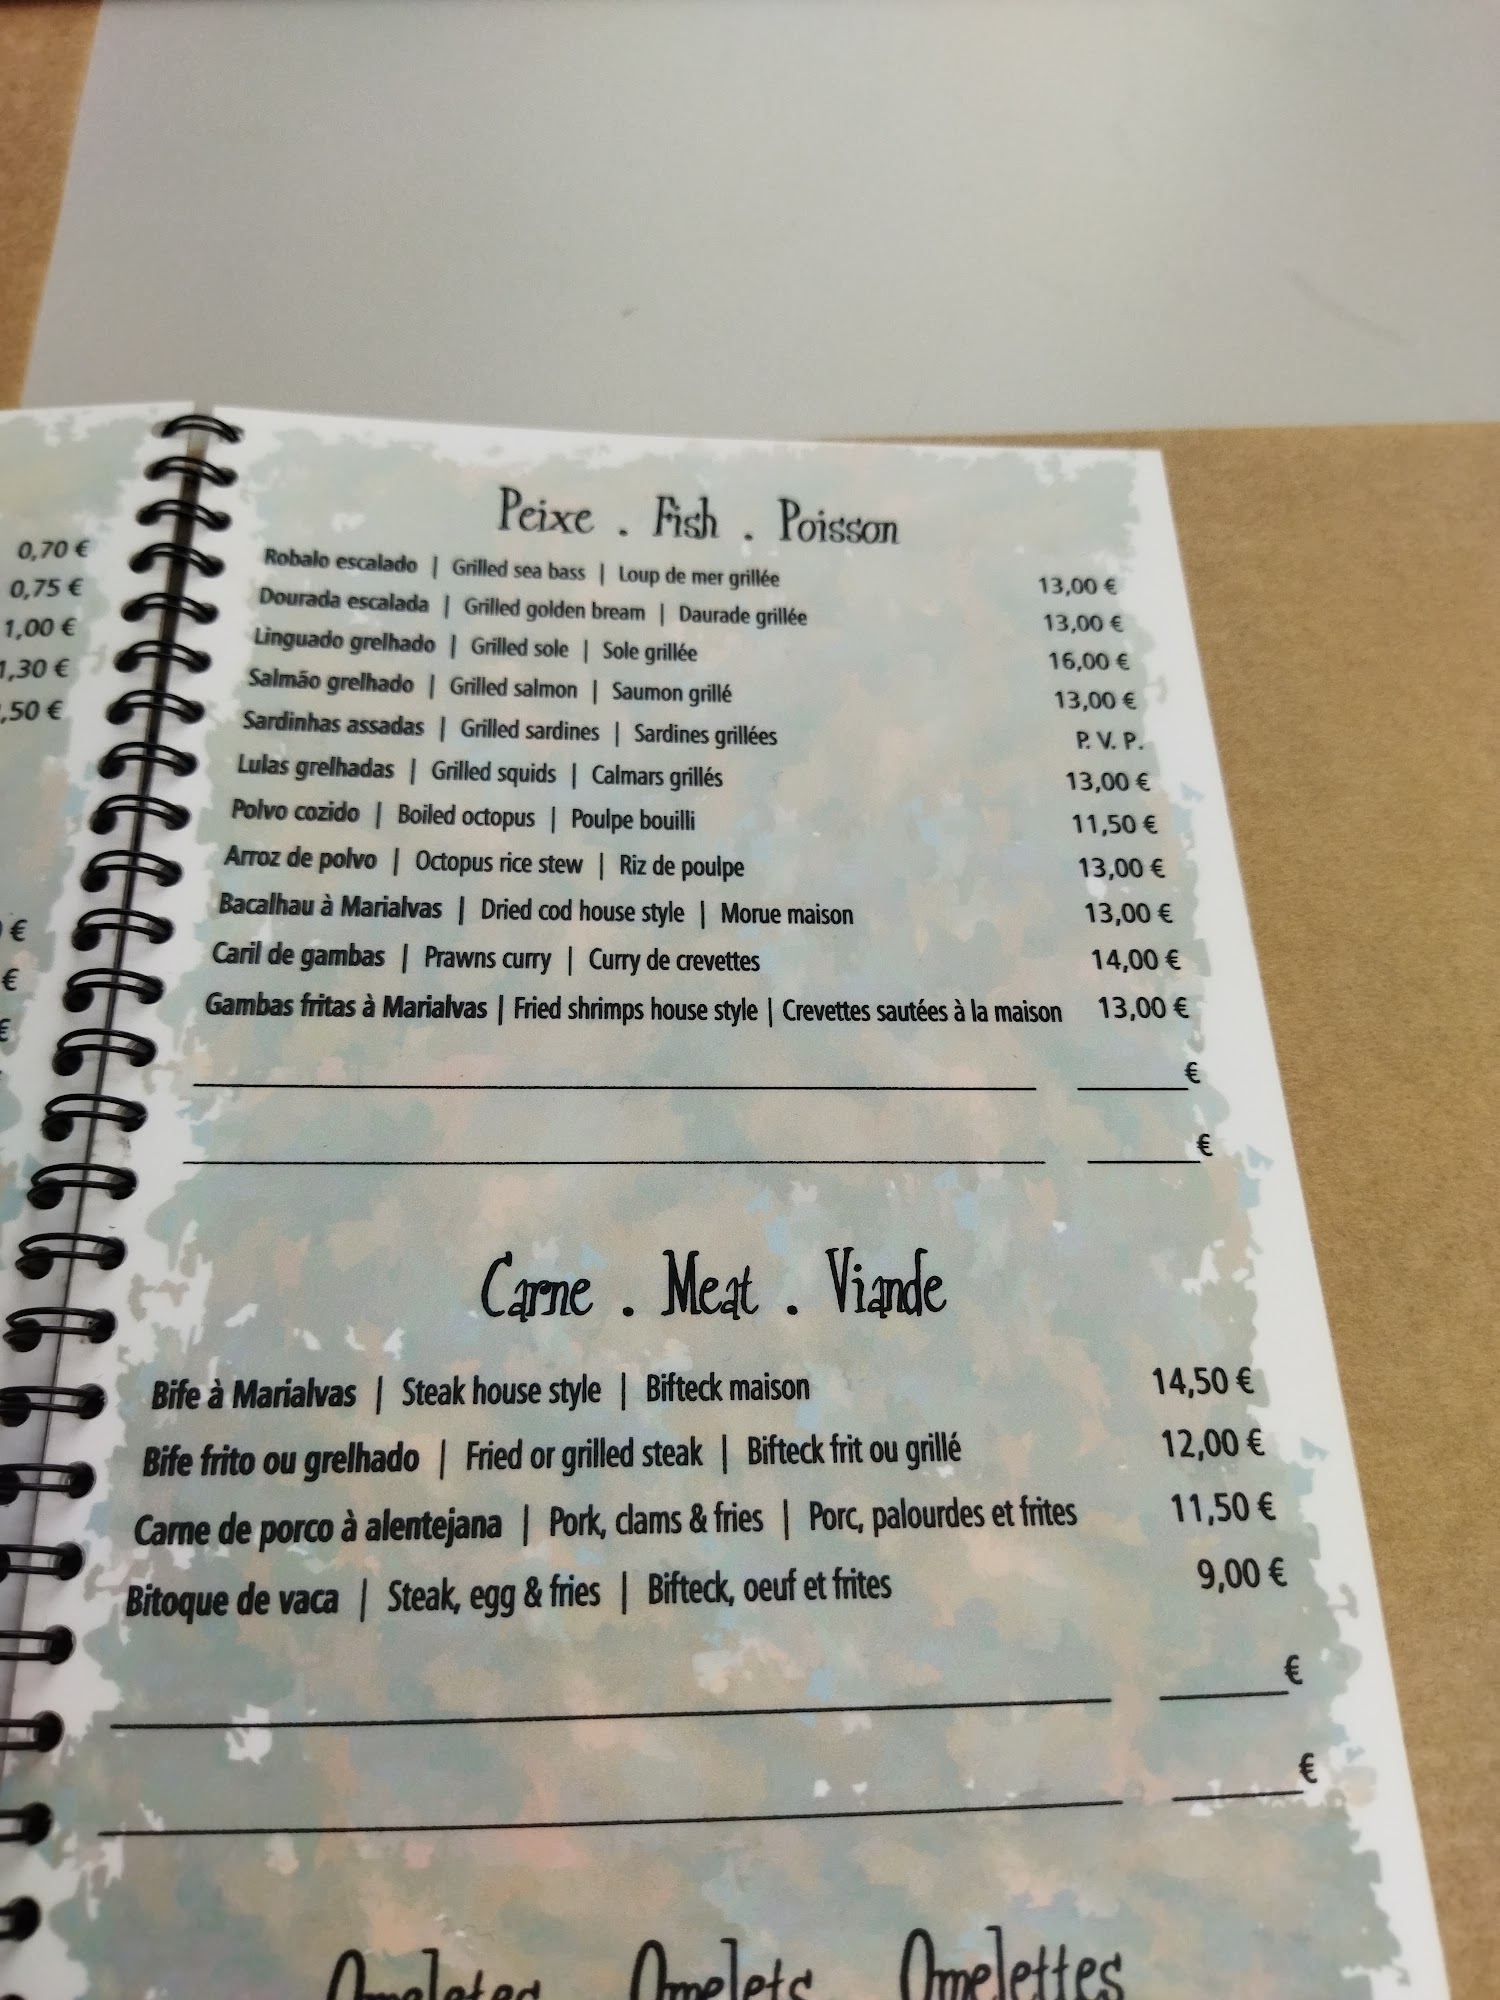 0,70 €
0,75 €
1,00 €
1,30 €
,50 €
€
€
€
Peixe . Fish . Poisson
Robalo escalado | Grilled sea bass | Loup de mer grillée 13,00 €
Dourada escalada | Grilled golden bream | Daurade grillée 13,00 €
Linguado grelhado | Grilled sole | Sole grillée 16,00 €
Salmão grelhado | Grilled salmon | Saumon grillé 13,00 €
Sardinhas assadas | Grilled sardines | Sardines grillées P. V. P.
Lulas grelhadas | Grilled squids | Calmars grillés 13,00 €
Polvo cozido | Boiled octopus | Poulpe bouilli 11,50 €
Arroz de polvo | Octopus rice stew | Riz de poulpe 13,00 €
Bacalhau à Marialvas | Dried cod house style | Morue maison 13,00 €
Caril de gambas | Prawns curry | Curry de crevettes 14,00 €
Gambas fritas à Marialvas | Fried shrimps house style | Crevettes sautées à la maison 13,00 €
€
€
Carne . Meat . Viande
Bife à Marialvas | Steak house style | Bifteck maison 14,50 €
Bife frito ou grelhado | Fried or grilled steak | Bifteck frit ou grillé 12,00 €
Carne de porco à alentejana | Pork, clams & fries | Porc, palourdes et frites 11,50 €
Bitoque de vaca | Steak, egg & fries | Bifteck, oeuf et frites 9,00 €
€
€
Omeletes Omelets Omelettes